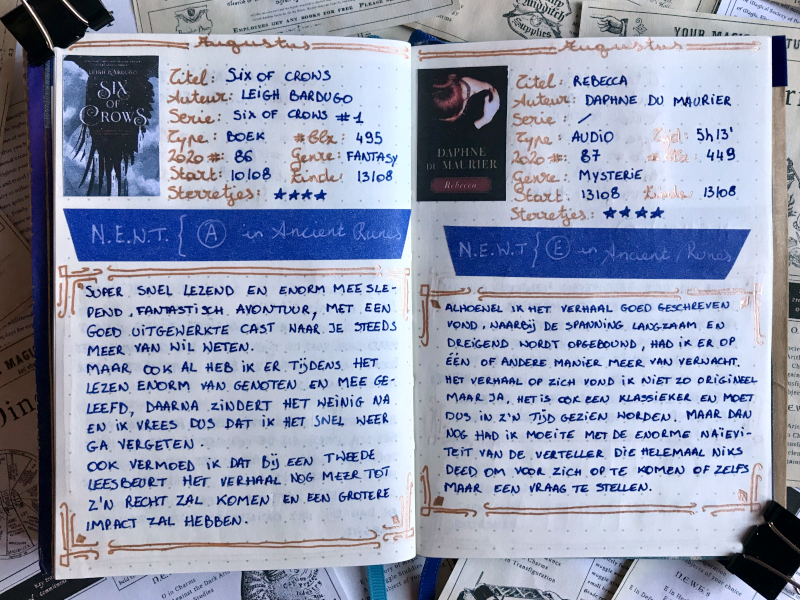 Augustus
LEIGH BARDUGO
SIX
OF
CROWS
Titel: SIX OF CROWS
Auteur: LEIGH BARDUGO
Serie: SIX OF CROWS #1
Type: BOEK #Blz: 495
2020 #: 86 Genre: FANTASY
Start: 10/08 Einde: 13/08
Sterretjes: ★★★★
N.E.W.T. { A in Ancient Runes
SUPER SNEL LEZEND EN ENORM MEESLE-
PEND, FANTASTISCH AVONTUUR, MET EEN
GOED UITGEWERKTE CAST WAAR JE STEEDS
MEER VAN WIL WETEN.
MAAR OOK AL HEB IK ER TIJDENS HET
LEZEN ENORM VAN GENOTEN EN MEE GE-
LEEFD, DAARNA ZINDERT HET WEINIG NA
EN IK VREES DUS DAT IK HET SNEL WEER
GA VERGETEN.
OOK VERMOED IK DAT BIJ EEN TWEEDE
LEESBEURT HET VERHAAL NOG MEER TOT
Z'N RECHT ZAL KOMEN EN EEN GROTERE
IMPACT ZAL HEBBEN.
Augustus
DAPHNE
DU MAURIER
Rebecca
Titel: REBECCA
Auteur: DAPHNE DU MAURIER
Serie: /
Type: AUDIO Tijd: 5h13'
2020 #: 87 #Blz: 449
Genre: MYSTERIE
Start: 13/08 Einde: 13/08
Sterretjes: ★★★★
N.E.W.T { E in Ancient Runes
ALHOEWEL IK HET VERHAAL GOED GESCHREVEN
VOND, WAARBIJ DE SPANNING LANGZAAM EN
DREIGEND WORDT OPGEBOUND, HAD IK ER OP
ÉÉN OF ANDERE MANIER MEER VAN VERWACHT.
HET VERHAAL OP ZICH VOND IK NIET ZO ORIGINEEL
MAAR JA, HET IS OOK EEN KLASSIEKER EN MOET
DUS IN Z'N TIJD GEZIEN WORDEN. MAAR DAN
NOG HAD IK MOEITE MET DE ENORME NAÏEVI-
TEIT VAN DE VERTELLER DIE HELEMAAL NIKS
DEED OM VOOR ZICH OP TE KOMEN OF ZELFS
MAAR EEN VRAAG TE STELLEN.
EMPLOYERS GET ANY BOOKS FOR HER FREE PLEASE
Supplies
YOUR MAGIC
in Charms
Against the Dark Arts
in Transfiguration
N.E.W.T.'s